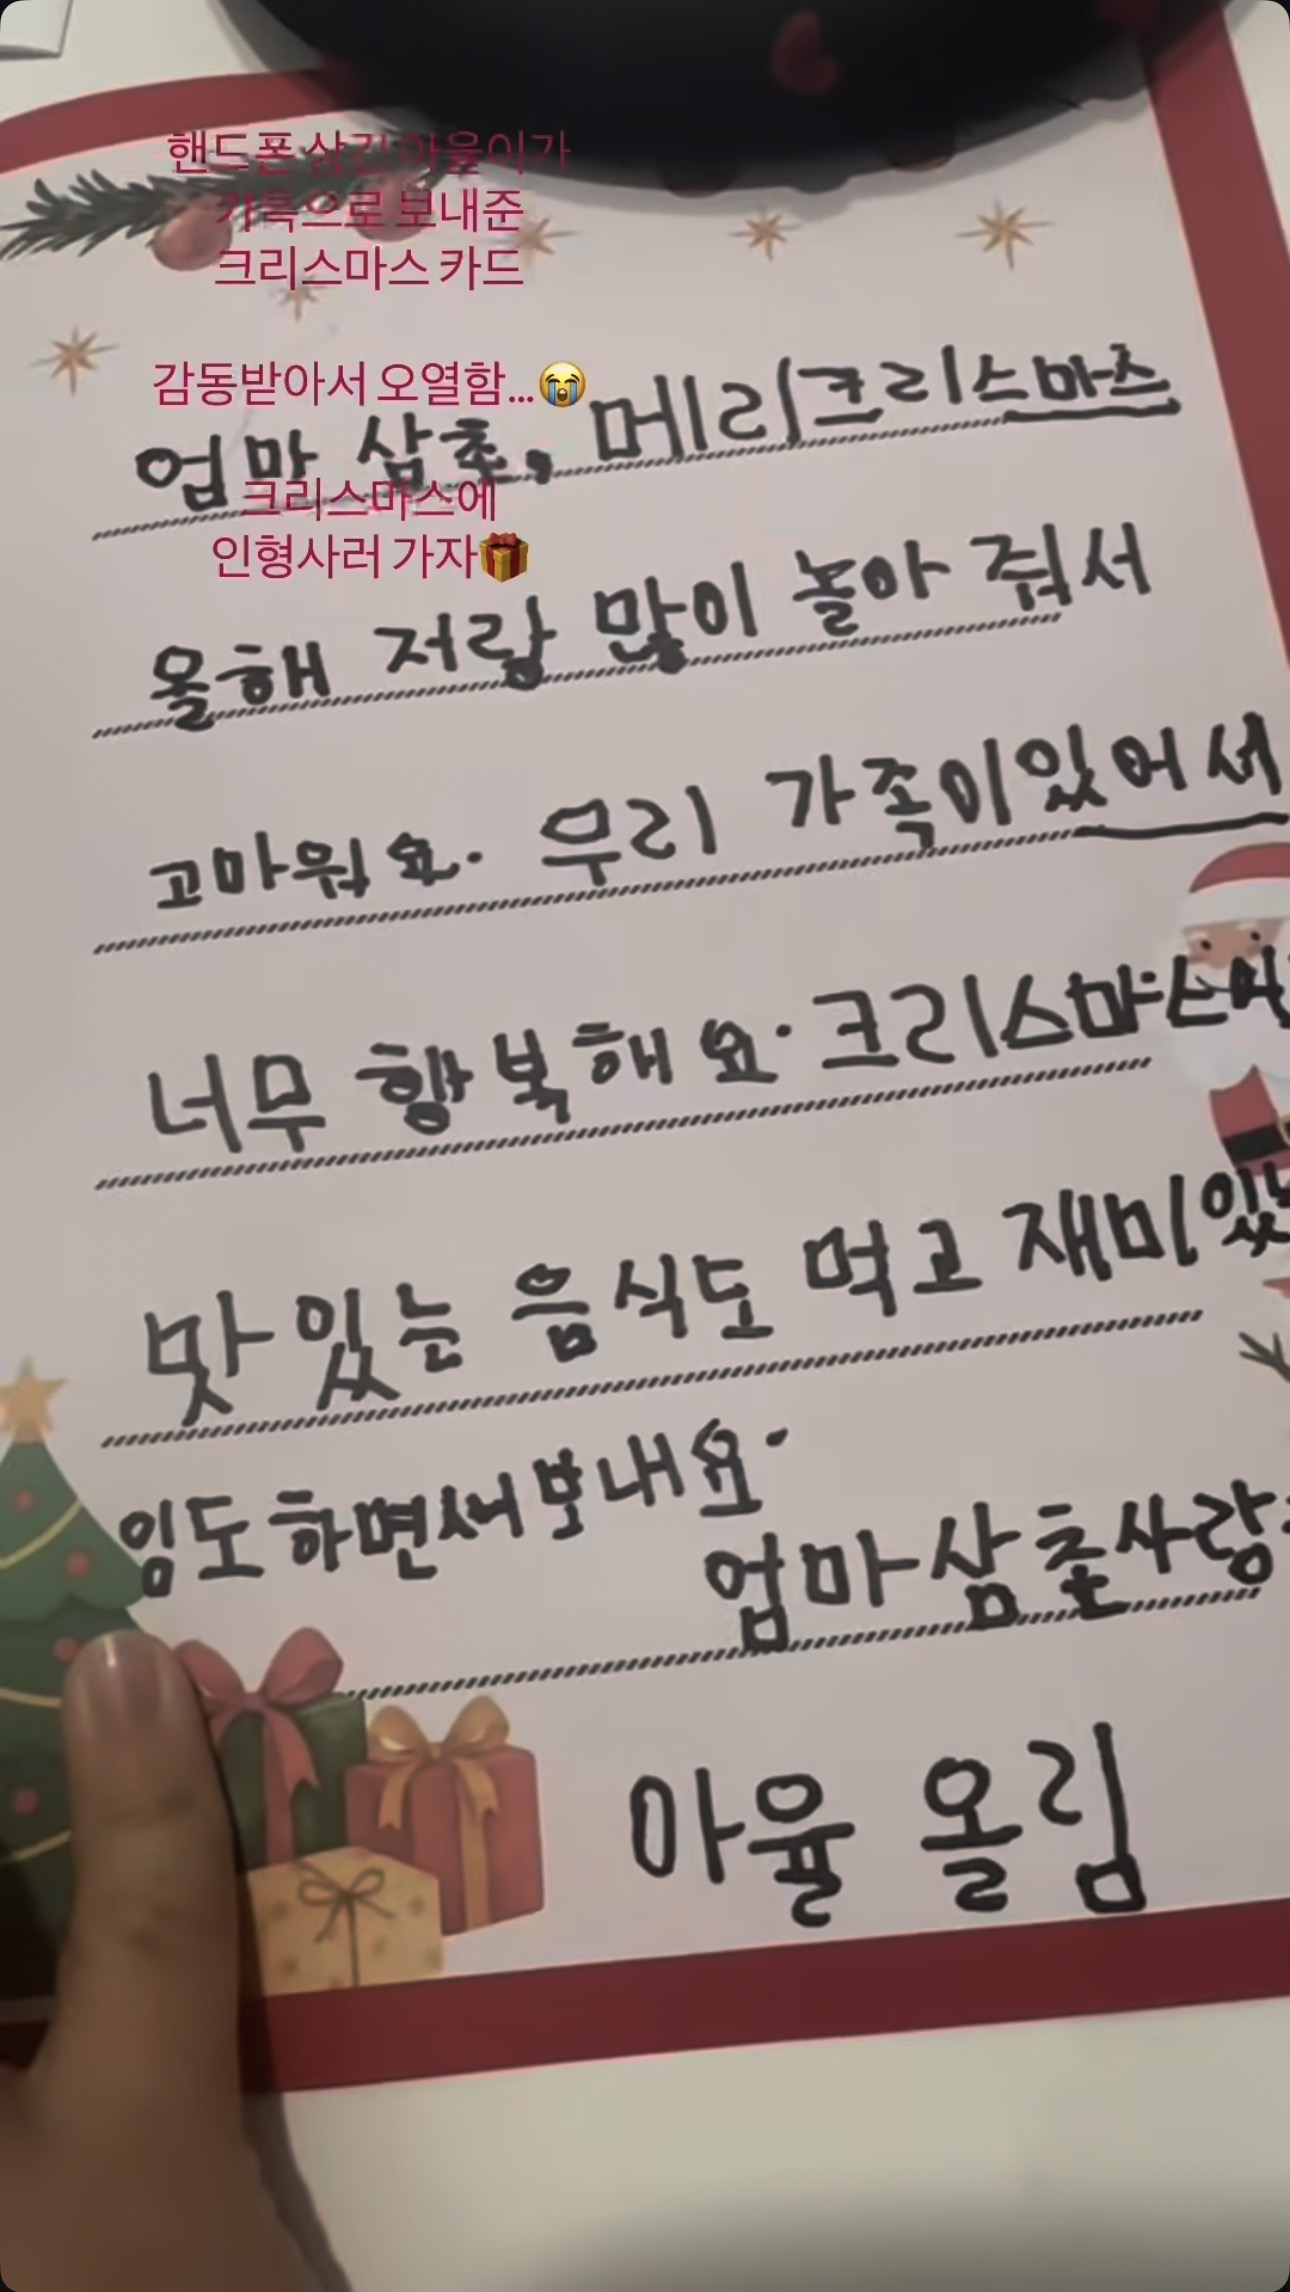 핸드폰 생긴 아율이가
카톡으로 보내준
크리스마스 카드
감동받아서 오열함...😭
엄마 삼촌, 메리크리스마스
크리스마스에
인형사러 가자🎁
올해 저랑 많이 놀아 줘서
고마워요. 우리 가족이있어서
너무 행복해요. 크리스마스에
맛있는 음식도 먹고 재미있
임도하면서보내요.
엄마삼촌사랑
아율 올림